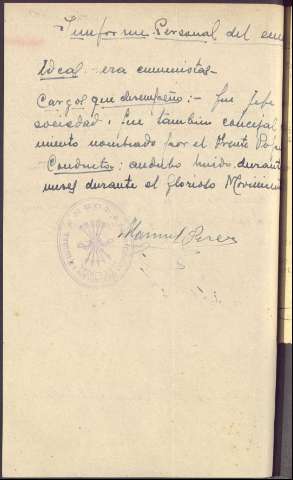 Imforme Personal del
Ideal: era comunistas-
Cargos que desempeño:- Fue Jefe
sociedad, fue también concejal
miento nombrado por el Frente Pop
Conducta: andubo huido durante
meses durante el Glorioso Movimien
Manuel Perez